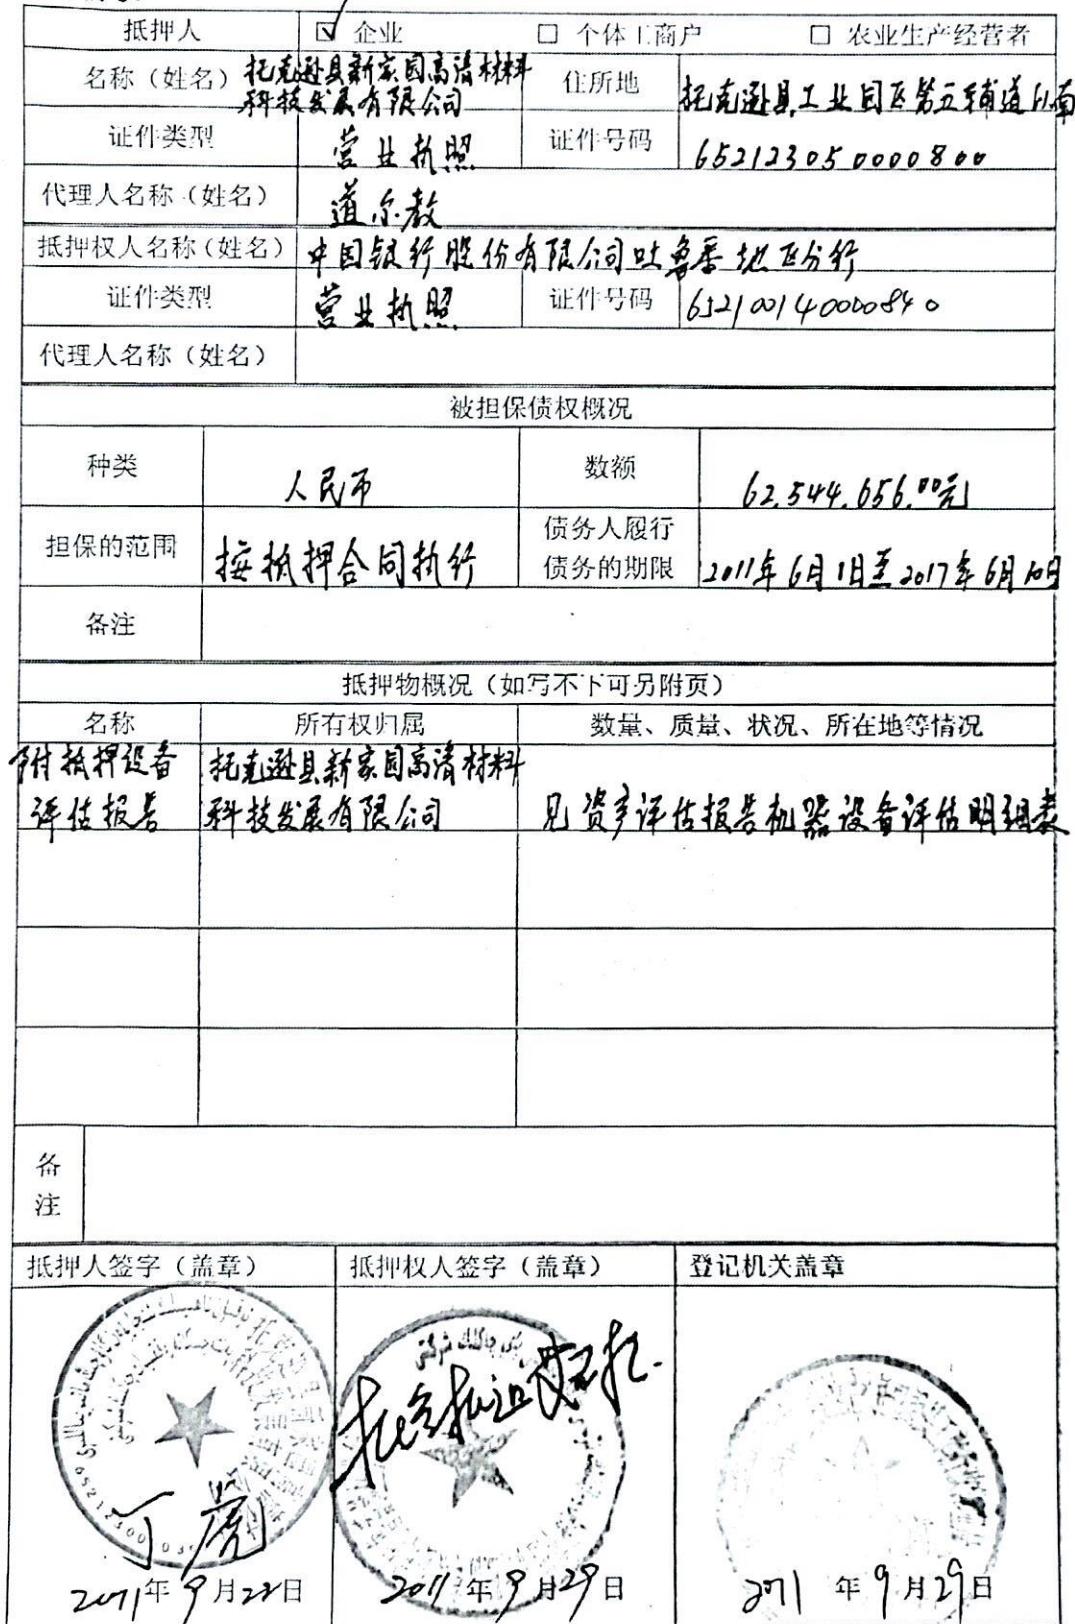 抵押人 ☑ 企业 □ 个体工商户 □ 农业生产经营者
名称（姓名） 托克逊县新家园高清材料 住所地 托克逊县工业园区第五辅道以南
科技发展有限公司
证件类型 营业执照 证件号码 652123050000800
代理人名称（姓名） 道尔教
抵押权人名称（姓名） 中国银行股份有限公司吐鲁番地区分行
证件类型 营业执照 证件号码 652100140000840
代理人名称（姓名）
被担保债权概况
种类 人民币 数额 62.544.656.00元
担保的范围 按抵押合同执行 债务人履行
债务的期限 2011年6月1日至2017年6月10日
备注
抵押物概况（如写不下可另附页）
名称 所有权归属 数量、质量、状况、所在地等情况
附抵押设备 托克逊县新家园高清材料
评估报告 科技发展有限公司 见资产评估报告机器设备评估明细表
备
注
抵押人签字（盖章） 抵押权人签字（盖章） 登记机关盖章
2011年9月22日 2011年9月29日 2011年9月29日